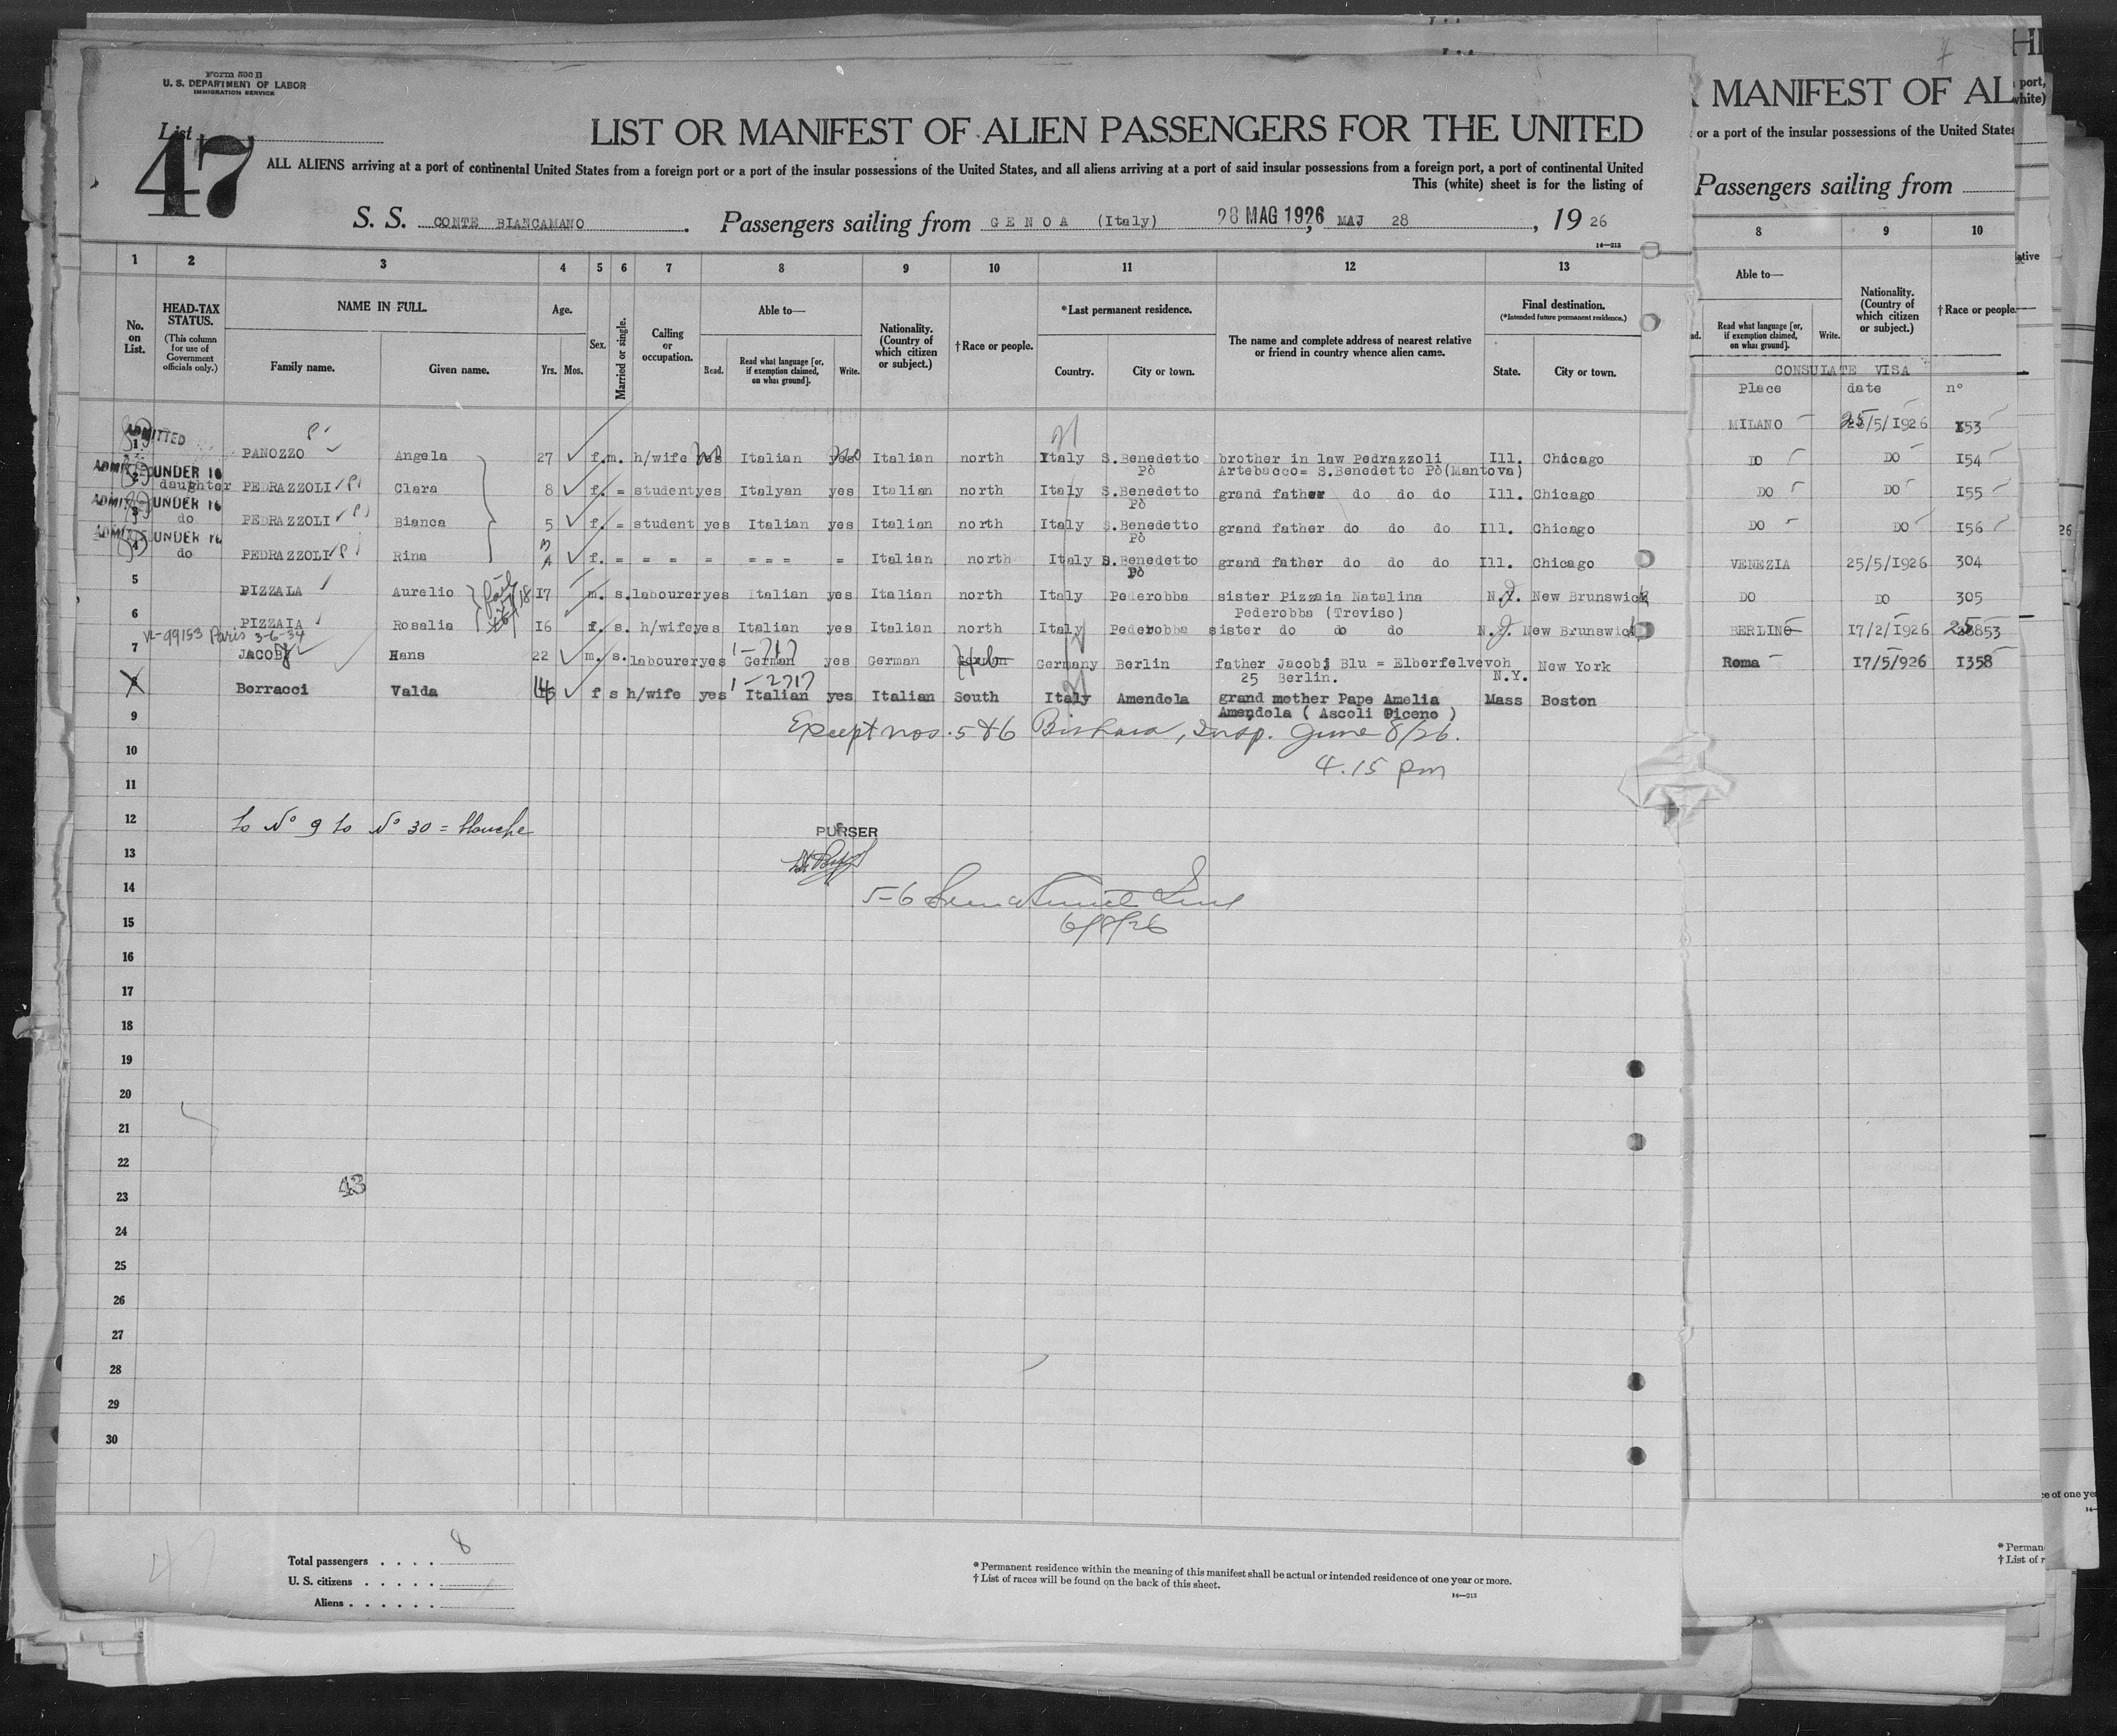 Form 500 B
U. S. DEPARTMENT OF LABOR
IMMIGRATION SERVICE
List
47
LIST OR MANIFEST OF ALIEN PASSENGERS FOR THE UNITED
ALL ALIENS arriving at a port of continental United States from a foreign port or a port of the insular possessions of the United States, and all aliens arriving at a port of said insular possessions from a foreign port, a port of continental United
This (white) sheet is for the listing of
S. S. CONTE BIANCAMANO. Passengers sailing from GENOA (Italy) 28 MAG 1926, MAJ 28, 19 26
14—213
1 2 3 4 5 6 7 8 9 10 11 12 13
No. on List.
HEAD-TAX STATUS.
(This column for use of Government officials only.)
NAME IN FULL.
Family name. Given name.
Age.
Yrs. Mos.
Sex.
Married or single.
Calling or occupation.
Able to—
Read. Read what language [or, if exemption claimed, on what ground]. Write.
Nationality. (Country of which citizen or subject.)
†Race or people.
*Last permanent residence.
Country. City or town.
The name and complete address of nearest relative or friend in country whence alien came.
Final destination.
(*Intended future permanent residence.)
State. City or town.
ADMITTED
1 PANOZZO Angela 27 f. m. h/wife yes no Italian yes no Italian north Italy S.Benedetto Pò brother in law Pedrazzoli Ill. Chicago
Artebacco= S.Benedetto Pò(Mantova)
ADMITTED UNDER 16
2 daughter PEDRAZZOLI Clara 8 f. = student yes Italyan yes Italian north Italy S.Benedetto Pò grand father do do do Ill. Chicago
ADMITTED UNDER 16
3 do PEDRAZZOLI Bianca 5 f. = student yes Italian yes Italian north Italy S.Benedetto Pò grand father do do do Ill. Chicago
ADMITTED UNDER 16
4 do PEDRAZZOLI Rina f. = = = = = = = = Italian north Italy S.Benedetto Pò grand father do do do Ill. Chicago
5 PIZZAIA Aurelio 17 m. s. labourer yes Italian yes Italian north Italy Pederobba sister Pizzaia Natalina N.J. New Brunswick
Pederobba (Treviso)
6 PIZZAIA Rosalia 16 f. s. h/wife yes Italian yes Italian north Italy Pederobba sister do do do N.J. New Brunswick
VL-99153 Paris 3-6-34
7 JACOBJ Hans 22 m. s. labourer yes German yes German German Heb Germany Berlin father Jacobj Blu = Elberfelvevoh N.Y. New York
25 Berlin.
8 Borracci Valda f s h/wife yes Italian yes Italian South Italy Amendola grand mother Pape Amelia Mass Boston
Amendola ( Ascoli Piceno )
9 Except nos. 5 & 6 Bishara, Insp. June 8/26.
10 4.15 pm
11
12 to N° 9 to N° 30 =
PURSER
13
14 5-6
15 6/8/26
16
17
18
19
20
21
22
23 43
24
25
26
27
28
29
30
Total passengers . . . . 8
U. S. citizens . . . . .
Aliens . . . . . .
*Permanent residence within the meaning of this manifest shall be actual or intended residence of one year or more.
†List of races will be found on the back of this sheet.
14—213
MANIFEST OF AL
or a port of the insular possessions of the United States
Passengers sailing from
8 9 10
Able to—
Read what language [or, if exemption claimed, on what ground]. Write.
Nationality. (Country of which citizen or subject.)
†Race or people.
CONSULATE VISA
Place date n°
MILANO 25/5/1926 153
DO DO 154
DO DO 155
DO DO 156
VENEZIA 25/5/1926 304
DO DO 305
BERLINO 17/2/1926 25853
Roma 17/5/926 1358
*Perman
†List of r
HI
port,
white)
lative
26
ce of one yea
14—